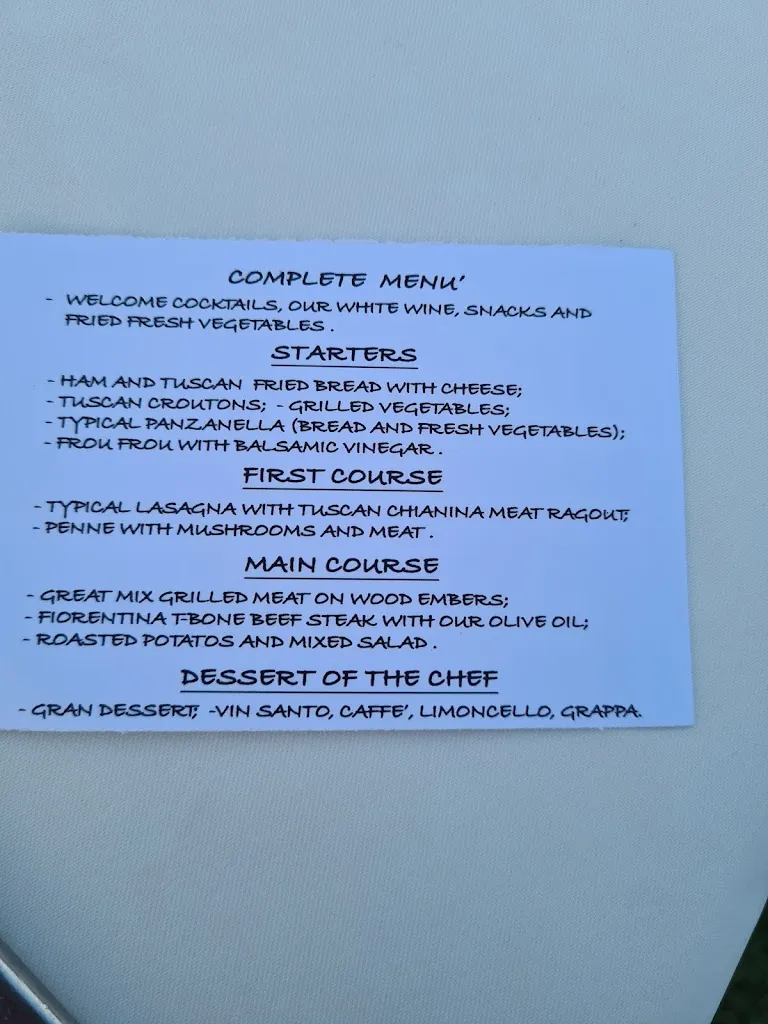 COMPLETE MENU'
- WELCOME COCKTAILS, OUR WHITE WINE, SNACKS AND
FRIED FRESH VEGETABLES.
STARTERS
- HAM AND TUSCAN FRIED BREAD WITH CHEESE;
- TUSCAN CROUTONS; - GRILLED VEGETABLES;
- TYPICAL PANZANELLA (BREAD AND FRESH VEGETABLES);
- FROU FROU WITH BALSAMIC VINEGAR.
FIRST COURSE
- TYPICAL LASAGNA WITH TUSCAN CHIANINA MEAT RAGOUT;
- PENNE WITH MUSHROOMS AND MEAT.
MAIN COURSE
- GREAT MIX GRILLED MEAT ON WOOD EMBERS;
- FIORENTINA T-BONE BEEF STEAK WITH OUR OLIVE OIL;
- ROASTED POTATOS AND MIXED SALAD.
DESSERT OF THE CHEF
- GRAN DESSERT; -VIN SANTO, CAFFE', LIMONCELLO, GRAPPA.